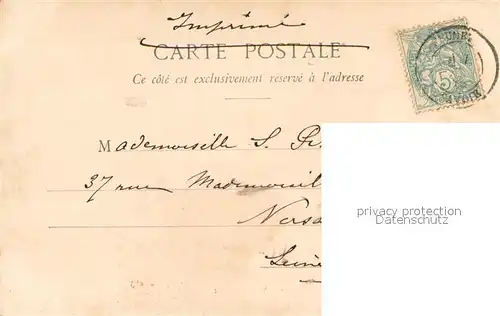 Imprimé
CARTE POSTALE
Ce côté est exclusivement réservé à l'adresse
Mademoiselle S.
37 rue Mademoisel
Versa
Seine
5
privacy protection
Datenschutz